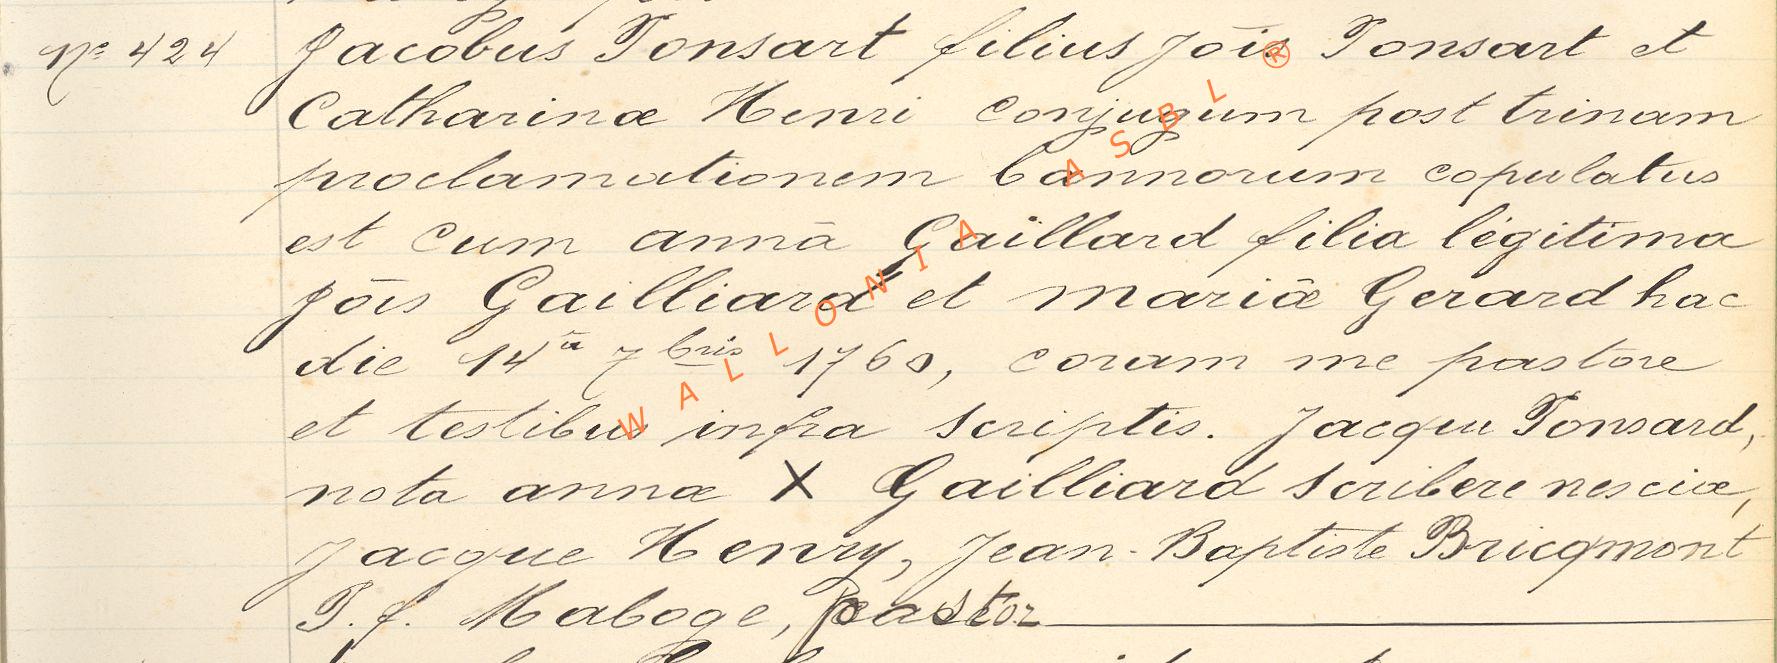 N° 424 Jacobus Ponsart filius Jōis Ponsart et
Catharinæ Henri conjugum post trinam
proclamationem bannorum copulatus
est cum annā Gaillard filia légitima
Jōis Gailliard et mariæ Gerard hac
die 14ā 7bris 1760, coram me pastore
et testibus infra scriptis. Jacque Ponsard,
nota annæ X Gailliard scribere nesciæ,
Jacque Henry, Jean-Baptiste Bricqmont
P. f. Maboge, pastor
WALLONIA ASBL ®